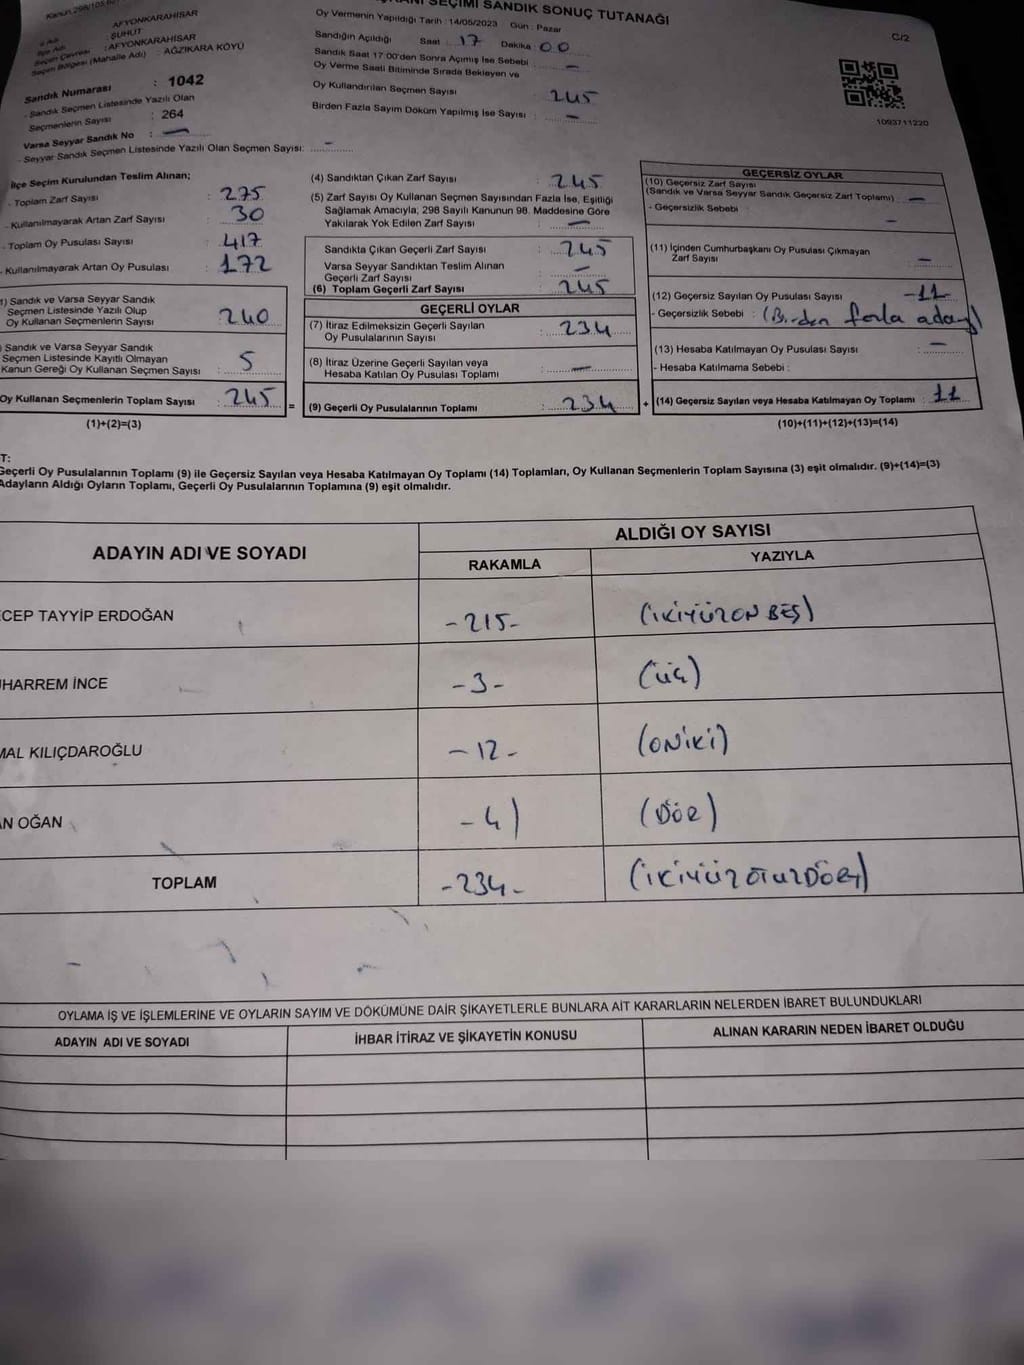 AFYONKARAHİSAR
ŞUHUT
Seçim Çevresi : AFYONKARAHİSAR
Seçim Bölgesi (Mahalle Adı) : AĞZIKARA KÖYÜ
Sandık Numarası : 1042
- Sandık Seçmen Listesinde Yazılı Olan
Seçmenlerin Sayısı : 264
Varsa Seyyar Sandık No : —
- Seyyar Sandık Seçmen Listesinde Yazılı Olan Seçmen Sayısı: –
SEÇİMİ SANDIK SONUÇ TUTANAĞI
Oy Vermenin Yapıldığı Tarih : 14/05/2023 Gün : Pazar
Sandığın Açıldığı Saat : 17 Dakika : 00
Sandık Saat 17:00'den Sonra Açılmış İse Sebebi : —
Oy Verme Saati Bitiminde Sırada Bekleyen ve
Oy Kullandırılan Seçmen Sayısı 245
Birden Fazla Sayım Döküm Yapılmış İse Sayısı : –
C/2
1093711220
İlçe Seçim Kurulundan Teslim Alınan;
- Toplam Zarf Sayısı : 275
- Kullanılmayarak Artan Zarf Sayısı : 30
- Toplam Oy Pusulası Sayısı : 417
- Kullanılmayarak Artan Oy Pusulası : 172
1) Sandık ve Varsa Seyyar Sandık
Seçmen Listesinde Yazılı Olup
Oy Kullanan Seçmenlerin Sayısı : 240
) Sandık ve Varsa Seyyar Sandık
Seçmen Listesinde Kayıtlı Olmayan
Kanun Gereği Oy Kullanan Seçmen Sayısı : 5
Oy Kullanan Seçmenlerin Toplam Sayısı : 245 =
(1)+(2)=(3)
(4) Sandıktan Çıkan Zarf Sayısı : 245
(5) Zarf Sayısı Oy Kullanan Seçmen Sayısından Fazla İse, Eşitliği
Sağlamak Amacıyla; 298 Sayılı Kanunun 98. Maddesine Göre
Yakılarak Yok Edilen Zarf Sayısı : —
Sandıkta Çıkan Geçerli Zarf Sayısı : 245
Varsa Seyyar Sandıktan Teslim Alınan
Geçerli Zarf Sayısı : –
(6) Toplam Geçerli Zarf Sayısı : 245
GEÇERLİ OYLAR
(7) İtiraz Edilmeksizin Geçerli Sayılan
Oy Pusulalarının Sayısı : 234
(8) İtiraz Üzerine Geçerli Sayılan veya
Hesaba Katılan Oy Pusulası Toplamı : —
(9) Geçerli Oy Pusulalarının Toplamı : 234 +
GEÇERSİZ OYLAR
(10) Geçersiz Zarf Sayısı
(Sandık ve Varsa Seyyar Sandık Geçersiz Zarf Toplamı) : —
- Geçersizlik Sebebi : –
(11) İçinden Cumhurbaşkanı Oy Pusulası Çıkmayan
Zarf Sayısı : –
(12) Geçersiz Sayılan Oy Pusulası Sayısı : -11-
- Geçersizlik Sebebi : (Birden fazla aday)
(13) Hesaba Katılmayan Oy Pusulası Sayısı : –
- Hesaba Katılmama Sebebi :
(14) Geçersiz Sayılan veya Hesaba Katılmayan Oy Toplamı : 11
(10)+(11)+(12)+(13)=(14)
T:
Geçerli Oy Pusulalarının Toplamı (9) ile Geçersiz Sayılan veya Hesaba Katılmayan Oy Toplamı (14) Toplamları, Oy Kullanan Seçmenlerin Toplam Sayısına (3) eşit olmalıdır. (9)+(14)=(3)
Adayların Aldığı Oyların Toplamı, Geçerli Oy Pusulalarının Toplamına (9) eşit olmalıdır.
ADAYIN ADI VE SOYADI
ALDIĞI OY SAYISI
RAKAMLA YAZIYLA
CEP TAYYİP ERDOĞAN -215- (İKİYÜZON BEŞ)
HARREM İNCE -3- (üç)
MAL KILIÇDAROĞLU -12- (ONİKİ)
AN OĞAN -4) (DÖR)
TOPLAM -234- (İKİYÜZOTUZDÖRT)
OYLAMA İŞ VE İŞLEMLERİNE VE OYLARIN SAYIM VE DÖKÜMÜNE DAİR ŞİKAYETLERLE BUNLARA AİT KARARLARIN NELERDEN İBARET BULUNDUKLARI
ADAYIN ADI VE SOYADI İHBAR İTİRAZ VE ŞİKAYETİN KONUSU ALINAN KARARIN NEDEN İBARET OLDUĞU